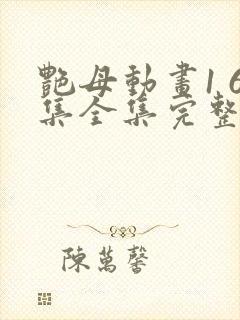 艷母動畫16
集全集完整
陳萬馨